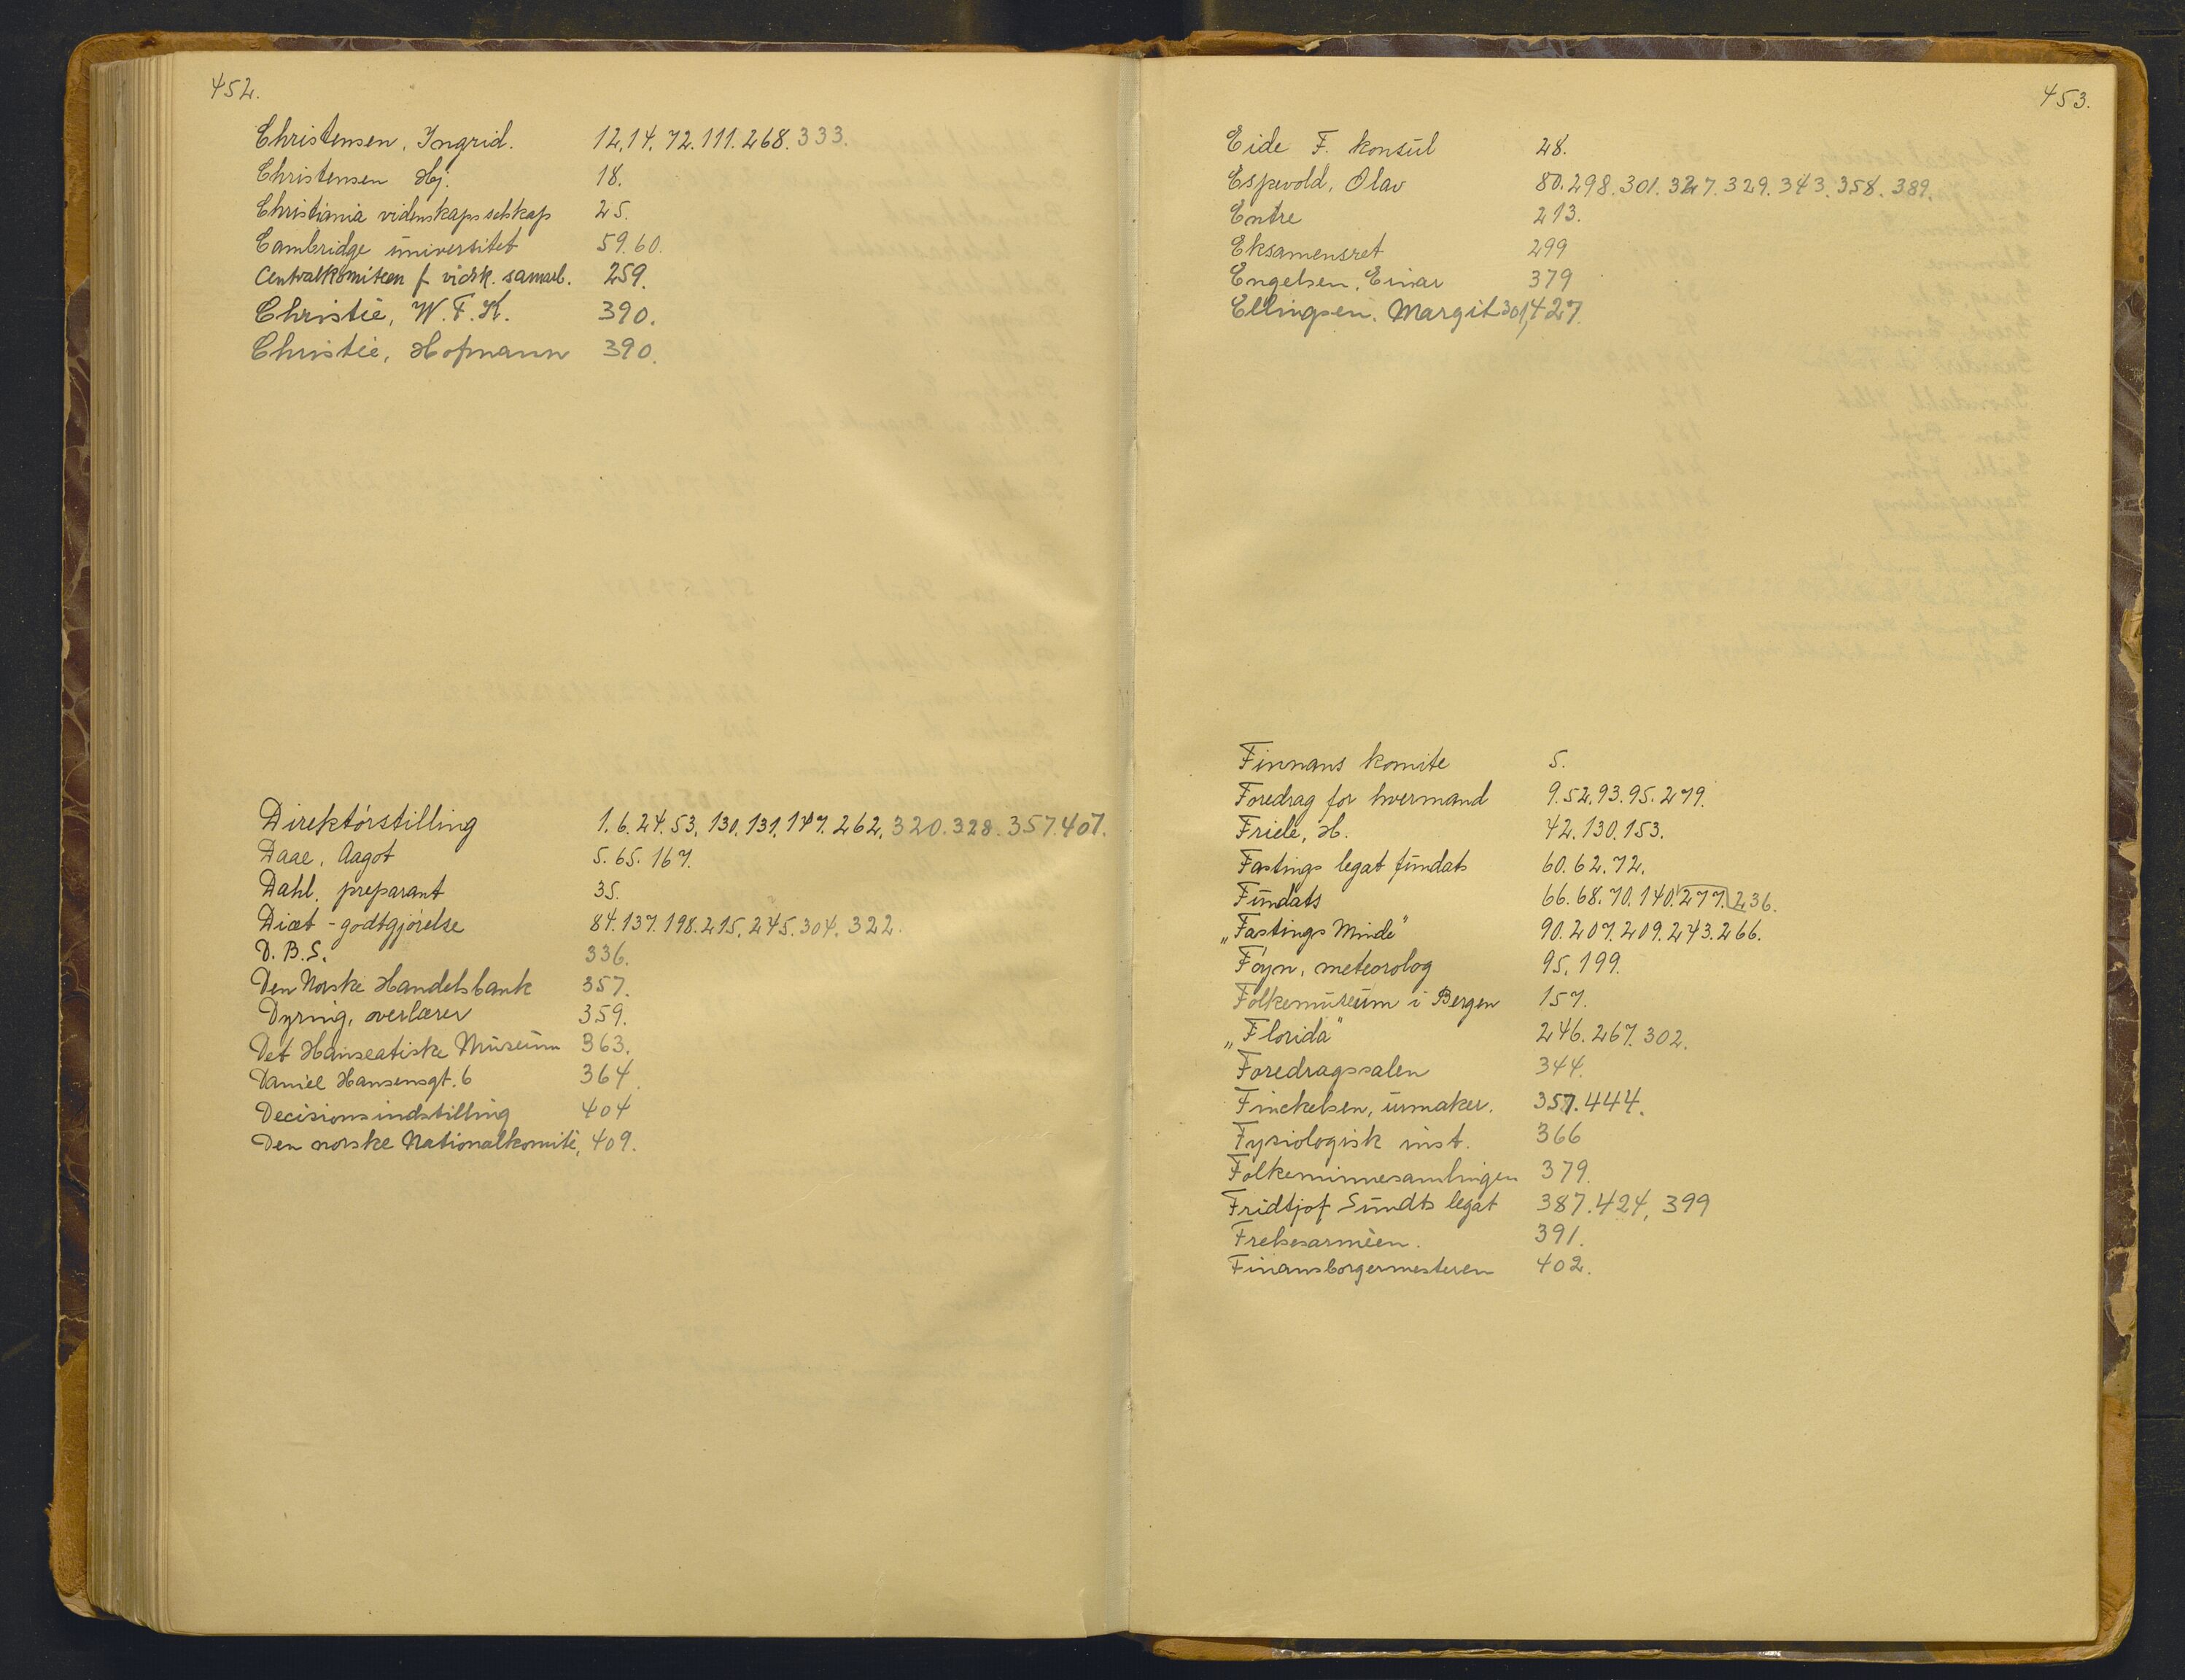 452.
Christensen, Ingrid. 12.14. 72. 111. 268. 333.
Christensen Hj. 18.
Christiania videnskapsselskap 25.
Cambridge universitet 59.60.
Centralkomiteen f. vidsk. samarb. 259.
Christie, W. F. K. 390.
Christie, Hofmann 390.
Direktørstilling 1. 6. 24. 53. 130. 131. 147. 262. 320. 328. 357. 407.
Daae, Aagot 5. 65. 167.
Dahl, preparant 35.
Diæt-godtgjørelse 84. 137. 198. 215. 245. 304. 322.
D. B. S. 336.
Den Norske Handelsbank 357.
Dyring, overlærer 359.
Det Hanseatiske Museum 363.
Daniel Hansensgt. 6 364.
Decisionsindstilling 404
Den norske Nationalkomité, 409.
453.
Eide F. konsul 28.
Espevold, Olav 80. 298. 301. 327. 329. 343. 358. 389.
Entre 213.
Eksamensret 299
Engelsen, Einar 379
Ellingsen, Margit 301, 427.
Finnans komite 5.
Foredrag for hvermand 9. 52. 93. 95. 279.
Friele, H. 42. 130. 153.
Fastings legat fundats 60. 62. 72.
Fundats 66. 68. 70. 140. 277. 236.
„Fastings Minde" 90. 207. 209. 243. 266.
Føyn, meteorolog 95. 199.
Folkemuseum i Bergen 157.
„Florida" 246. 267. 302.
Foredragssalen 344.
Finckelsen, urmaker. 357. 444.
Fysiologisk inst. 366
Folkeminnesamlingen 379.
Fridtjof Sundts legat 387. 424, 399
Frelsesarméen. 391.
Finansborgermesteren 402.